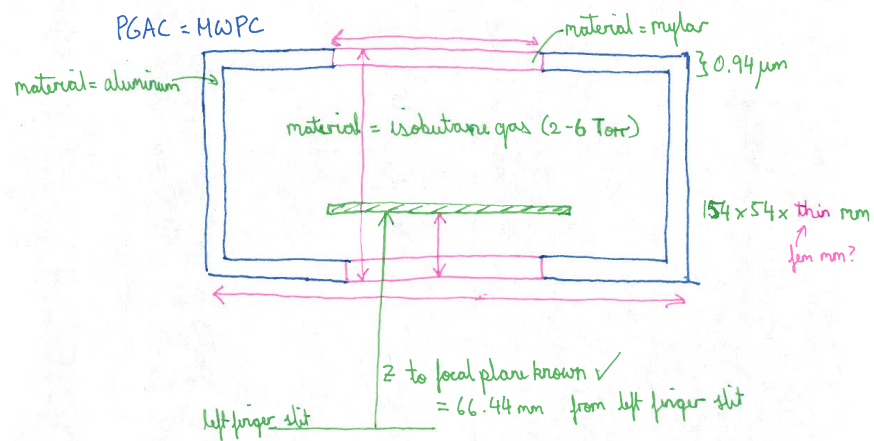 PGAC = MWPC
material = mylar
0.94 μm
material = aluminum
material = isobutane gas (2-6 Torr)
154 x 54 x thin mm
few mm?
z to focal plane known ✓
= 66.44 mm from left finger slit
left finger slit